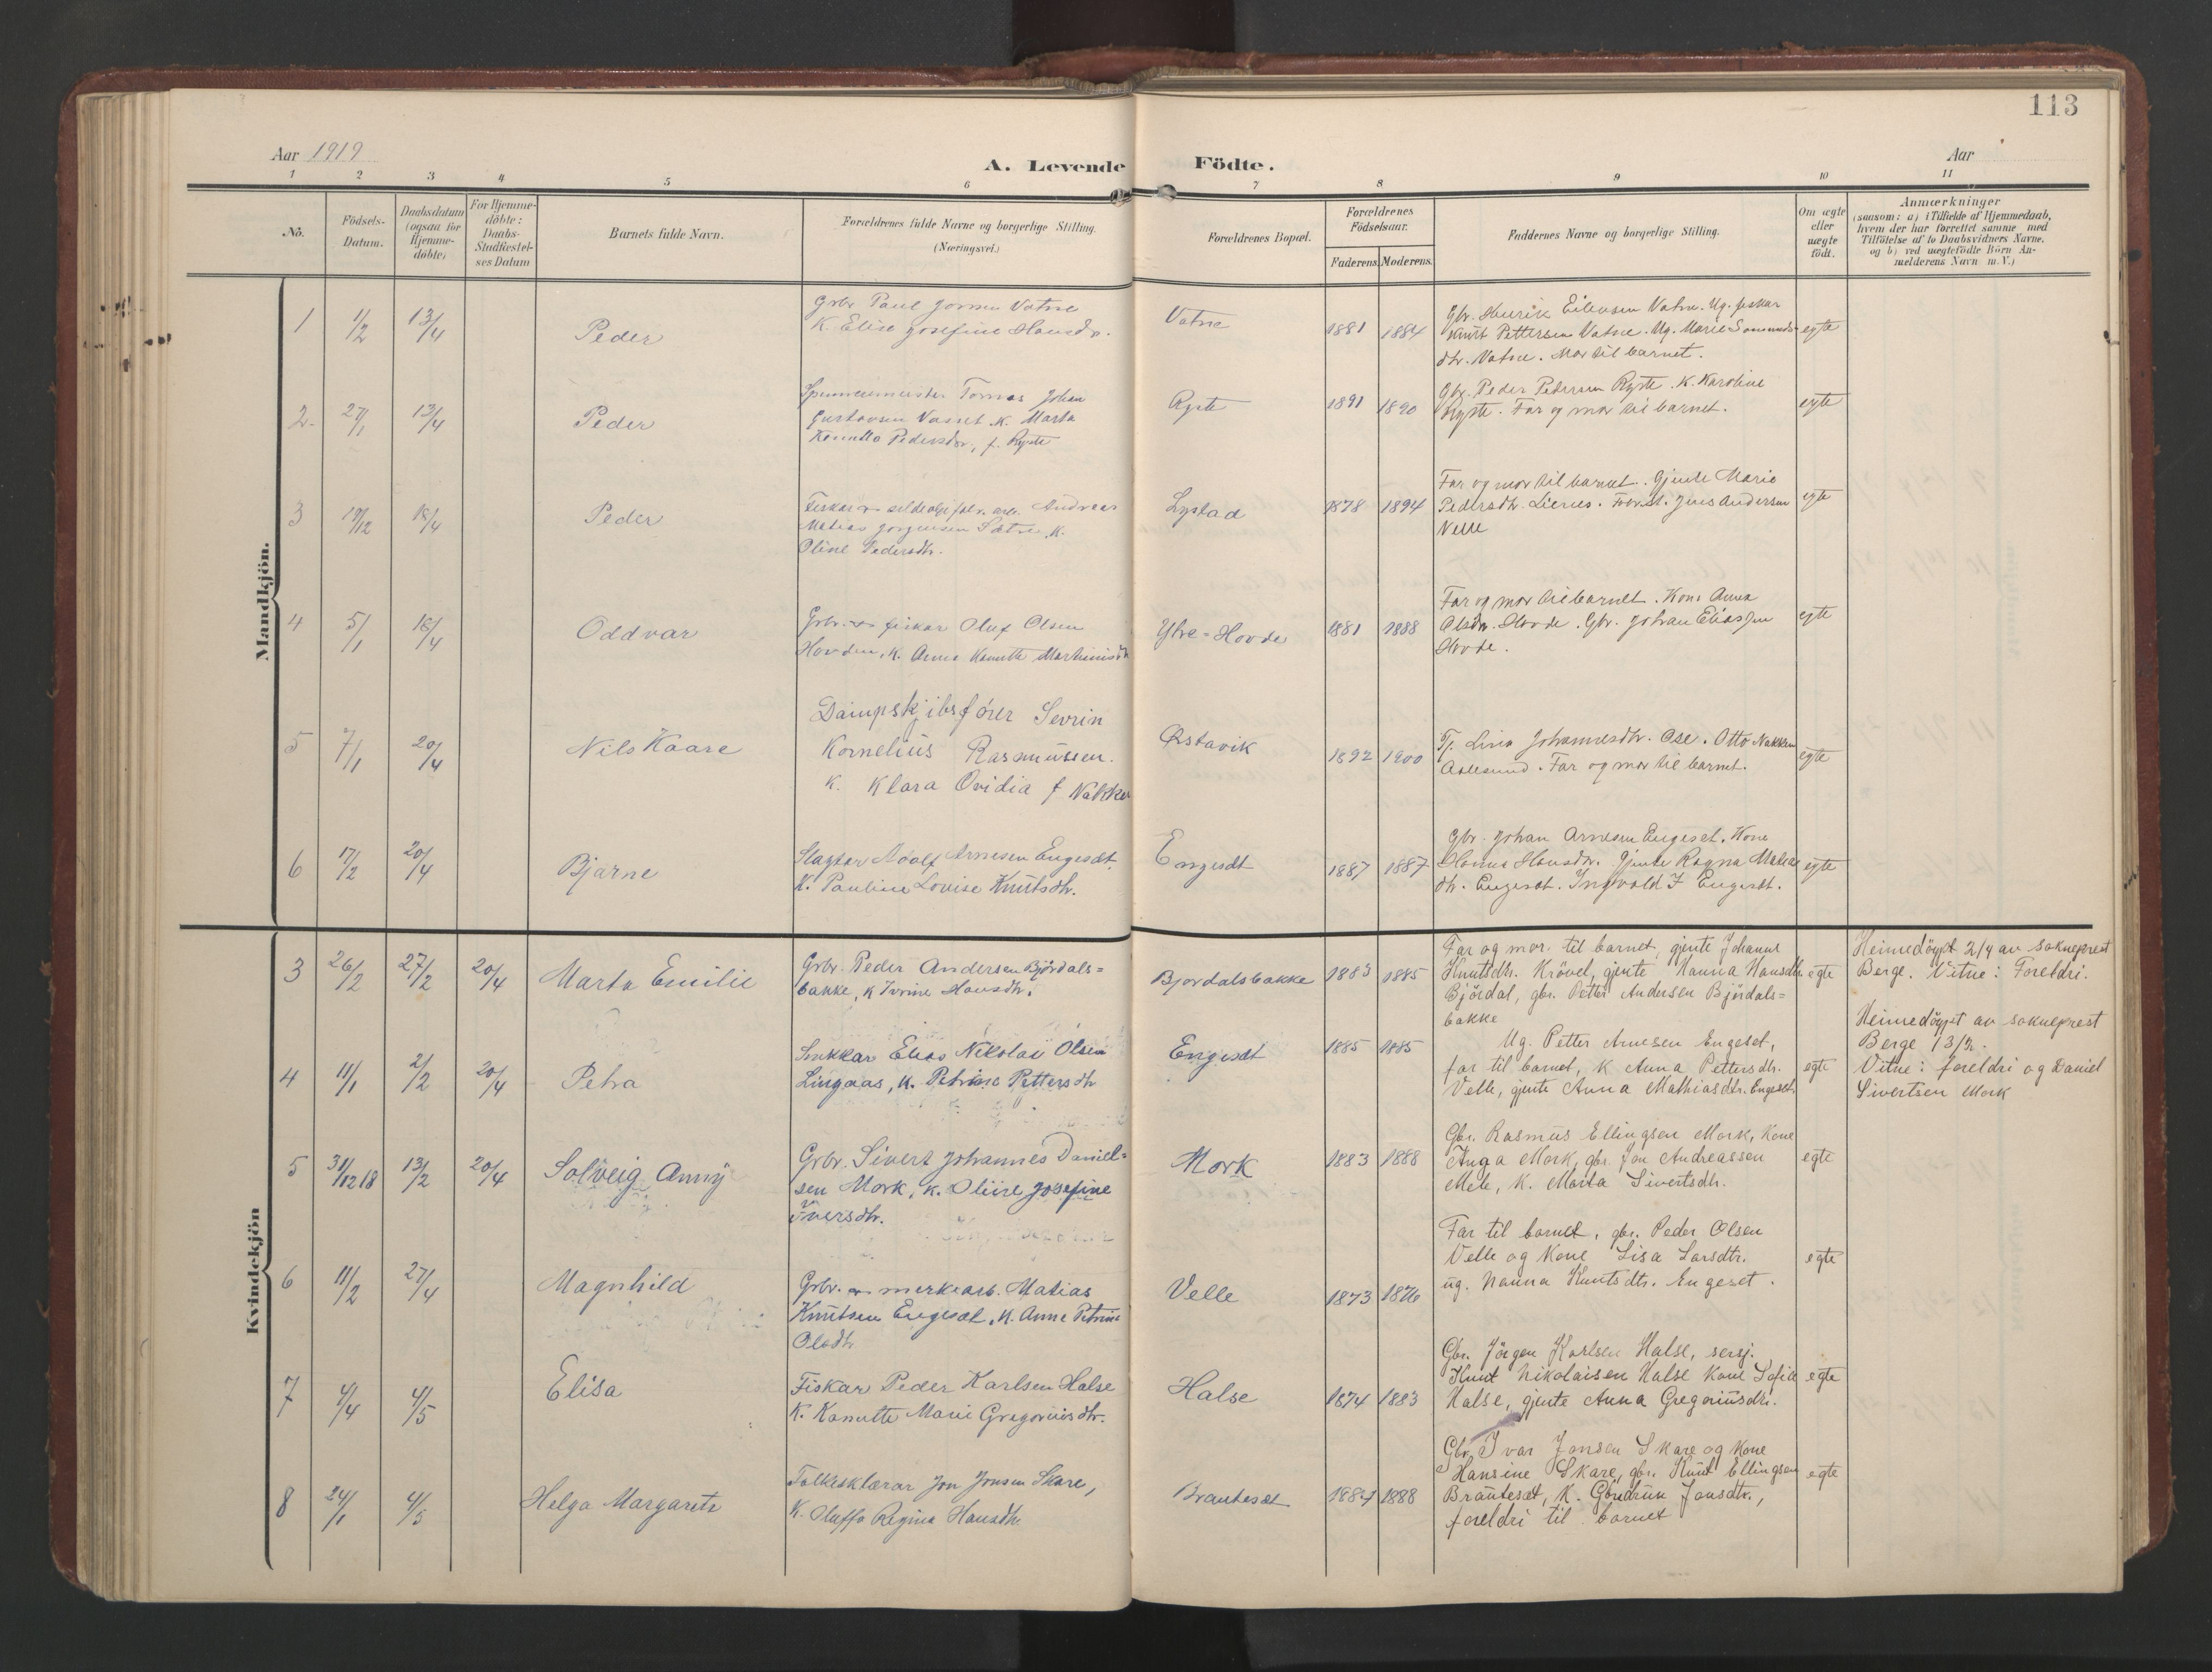 113
Aar 1919
A. Levende Födte.
Aar
1 2 3 4 5 6 7 8 9 10 11
No.
Födsels-
Datum.
Daabsdatum
(ogsaa for
Hjemme-
döbte)
For Hjemme-
döbte:
Daabs-
Stadfæstel-
ses Datum
Barnets fulde Navn.
Forældrenes fulde Navne og borgerlige Stilling.
(Næringsvei.)
Forældrenes Bopæl.
Forældrenes
Födselsaar.
Faderens.
Moderens.
Faddernes Navne og borgerlige Stilling.
Om ægte
eller
uægte
födt.
Anmærkninger
(saasom: a) i Tilfælde af Hjemmedaab,
hvem der har forrettet samme med
Tilföielse af to Daabsvidners Navne.
og b) ved uægtefödte Börn An-
melderens Navn m. V.)
Mandkjön.
1 1/2 13/4 Peder
Grbr Paul Vatne
K. Elise Josefine Hansdr.
Vatne 1881 1884
Gbr. Henrik Eilevsen Vatne. Ug. fiskar
Knut Pettersen Vatne. Ug. Marie
dtr. Vatne. Mor til barnet.
egte
2 27/1 13/4 Peder
Tomas Johan
Gustavsen Vasset K. Marta
Kanutta Pedersdr, f. Ryste
Ryste 1891 1890
Gbr. Peder Pedersen Ryste. K. Karoline
Ryste. Far og mor til barnet.
egte
3 19/12 18/4 Peder
Fiskar Andreas
Matias Jørgensen Sætre, K.
Oline Pedersdtr.
Lystad 1878 1894
Far og mor til barnet. Gjente Marie
Pedersdtr. Jens Andersen
Velle
egte
4 5/1 18/4 Oddvar
Grbr. fiskar Oluf Olsen
Hovden, K. Anna Kanutte Martinusdtr
Ytre=Hovde 1881 1888
Far og mor til barnet. Kone Anna
Olsdtr. Hovde. Gbr. Johan Eliassen
Hovde.
egte
5 7/1 20/4 Nils Kaare
Dampskjibsförer Sevrin
Kornelius Rasmussen.
K. Klara Ovidia f Nakken
Ørstavik 1892 1900
Tj. Lina Johannesdtr. Ose. Otto Nakken
Aalesund. Far og mor til barnet.
egte
6 17/2 20/4 Bjarne
Slagtar Adolf Arnesen Engeset.
K. Pauline Lovise Knutsdtr.
Engeset 1887 1887
Gbr. Johan Arnesen Engeset. Kone
Hanna Hansdtr. Gjente Ragna Matias
dtr. Engeset. Ingvald J Engeset.
egte
Kvindekjön
3 26/2 27/2 20/4 Marta Emilie
Grbr. Peder Andersen Björdals=
bakke, K Ivrine Hansdtr.
Bjordalsbakke 1883 1885
Far og mor. til barnet, gjente Johanne
Knutsdtr. Krövel, gjente Hanna Hansdtr
Björdal, gbr. Petter Andersen Björdals=
bakke
egte
Heimedöypt 27/4 av sokneprest
Berge. Vitne: Foreldri.
4 11/1 2/2 20/4 Petra
Snikkar Elias Nikolai Olsen
Lingaas, K. Petrine Pettersdtr
Engeset 1885 1885
Ug. Petter Arnesen Engeset,
far til barnet, K Anna Pettersdtr.
Velle, gjente Anna Mathiasdtr. Engeset.
egte
Heimedöypt av sokneprest
Berge 13/2.
Vitne: foreldri og Daniel
Sivertsen Mork
5 31/12 18 13/2 20/4 Solveig Anny
Grbr. Sivert Johannes Daniel=
sen Mork, K. Oliise Josefine
Iversdtr.
Mork 1883 1888
Gbr. Rasmus Ellingsen Mork, Kone
Inga Mork, gbr. Jon Andreassen
Mele, K. Marta Sivertsdtr.
egte
6 11/2 27/4 Magnhild
Grbr. Matias
Knutsen Engeset, K. Anne Petrine
Olsdtr
Velle 1873 1876
Far til barnet, gbr. Peder Olsen
Velle og Kone Lisa Larsdtr.
ug. Nanna Knutsdtr. Engeset.
egte
7 4/4 4/5 Elisa
Fiskar Peder Karlsen Halse
K. Kanutte Marie Gregoriusdtr.
Halse 1874 1883
Gbr. Jörgen Karlsen Halse, sersj.
Knut Nikolaisen Halse Kone Sofia
Halse, gjente Anna Gregoriusdtr.
egte
8 24/1 4/5 Helga Margarete
Folkesklærar Jon Jonsen Skare,
K. Oluffa Regina Hansdtr.
Brauteset 1884 1888
Gbr. Ivar Jonsen Skare og Kone
Hansine Skare, gbr. Knut Ellingsen
Brauteset, K. Gudrun Jonsdtr.,
foreldri til barnet
egte